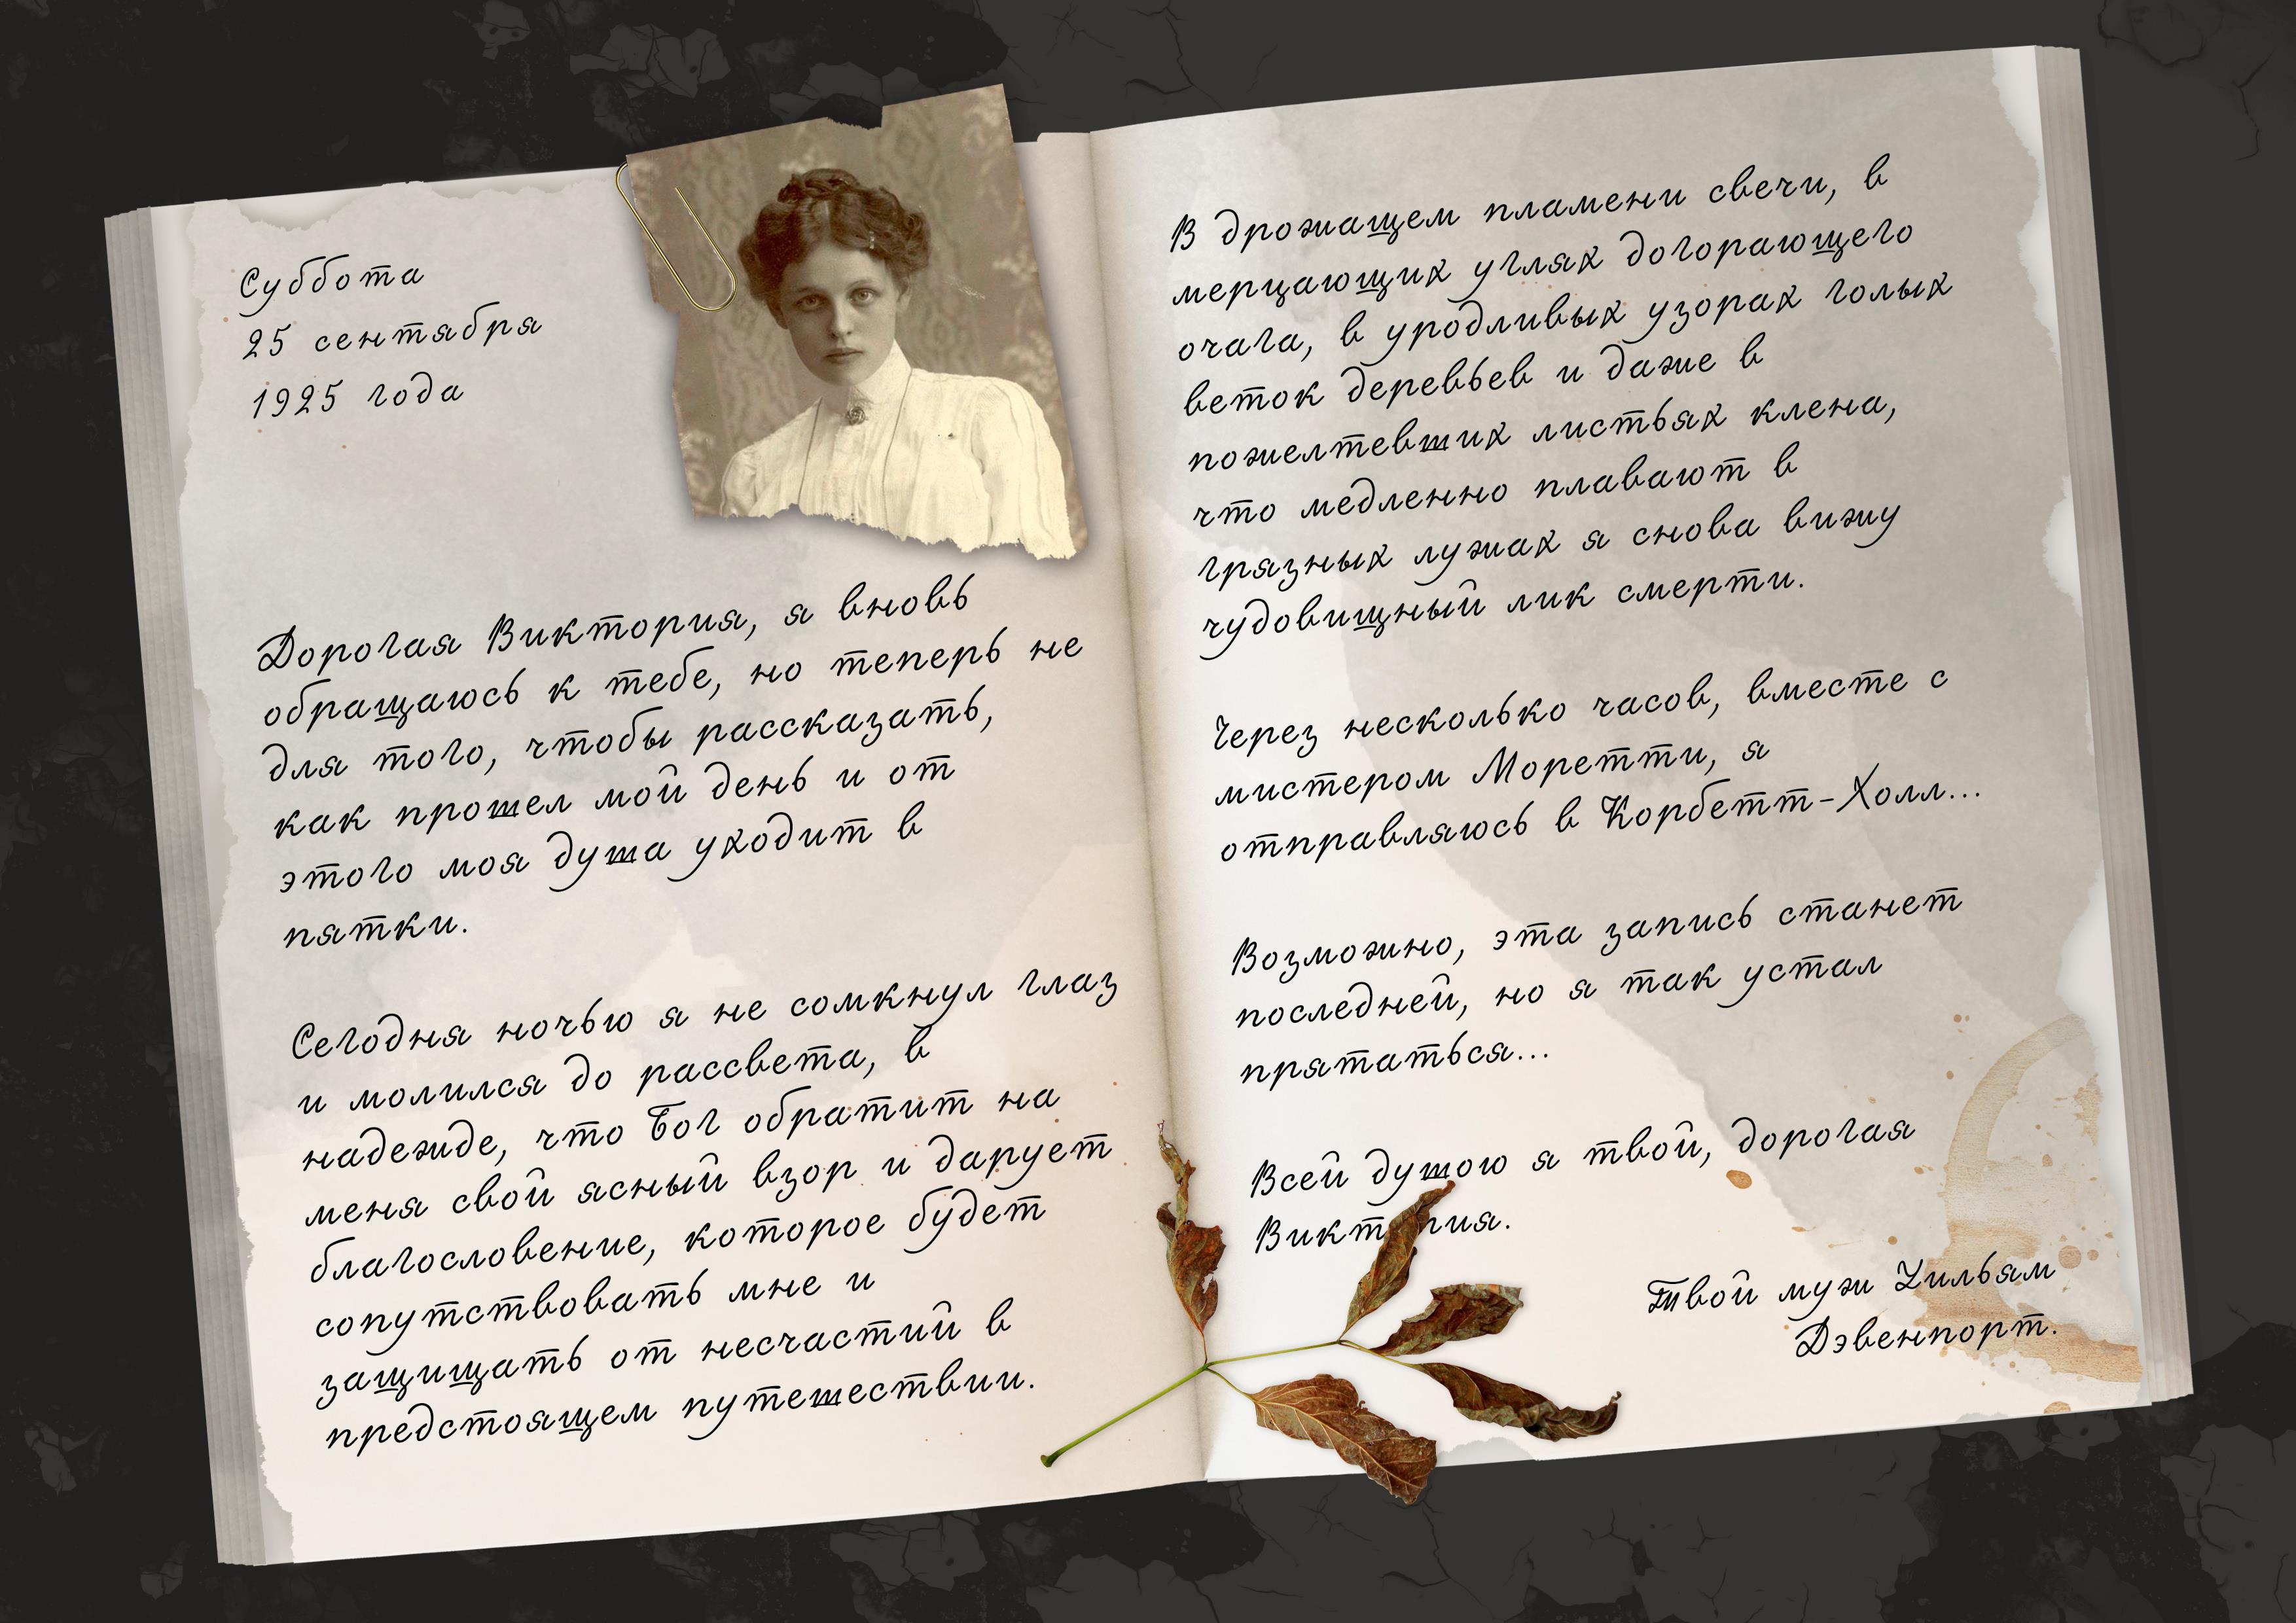 Суббота
25 сентября
1925 года
Дорогая Виктория, я вновь
обращаюсь к тебе, но теперь не
для того, чтобы рассказать,
как прошел мой день и от
этого моя душа уходит в
пятки.
Сегодня ночью я не сомкнул глаз
и молился до рассвета, в
надежде, что Бог обратит на
меня свой ясный взор и дарует
благословение, которое будет
сопутствовать мне и
защищать от несчастий в
предстоящем путешествии.
В дрожащем пламени свечи, в
мерцающих углях догорающего
очага, в уродливых узорах голых
веток деревьев и даже в
пожелтевших листьях клена,
что медленно плавают в
грязных лужах я снова вижу
чудовищный лик смерти.
Через несколько часов, вместе с
мистером Моретти, я
отправляюсь в Корбетт-Холл...
Возможно, эта запись станет
последней, но я так устал
прятаться...
Всей душою я твой, дорогая
Виктория.
Твой муж Уильям
Дэвенпорт.